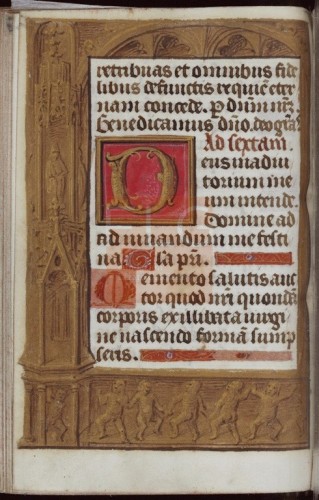 retribuas et omnibus fide
libus defunctis requiē eter
nam concede. P dūm nr̄z
Benedicamus dn̄o. deo gr̄a
Ad sextam.
Deus in adiu
torium me
um intende.
Domine ad
ad iuuandum me festi
na Gl̄a pr̄i.
Memento salutis auc
tor quod nr̄i quondā
corporis ex illibata uirgi
ne nascendo formā sump
seris.